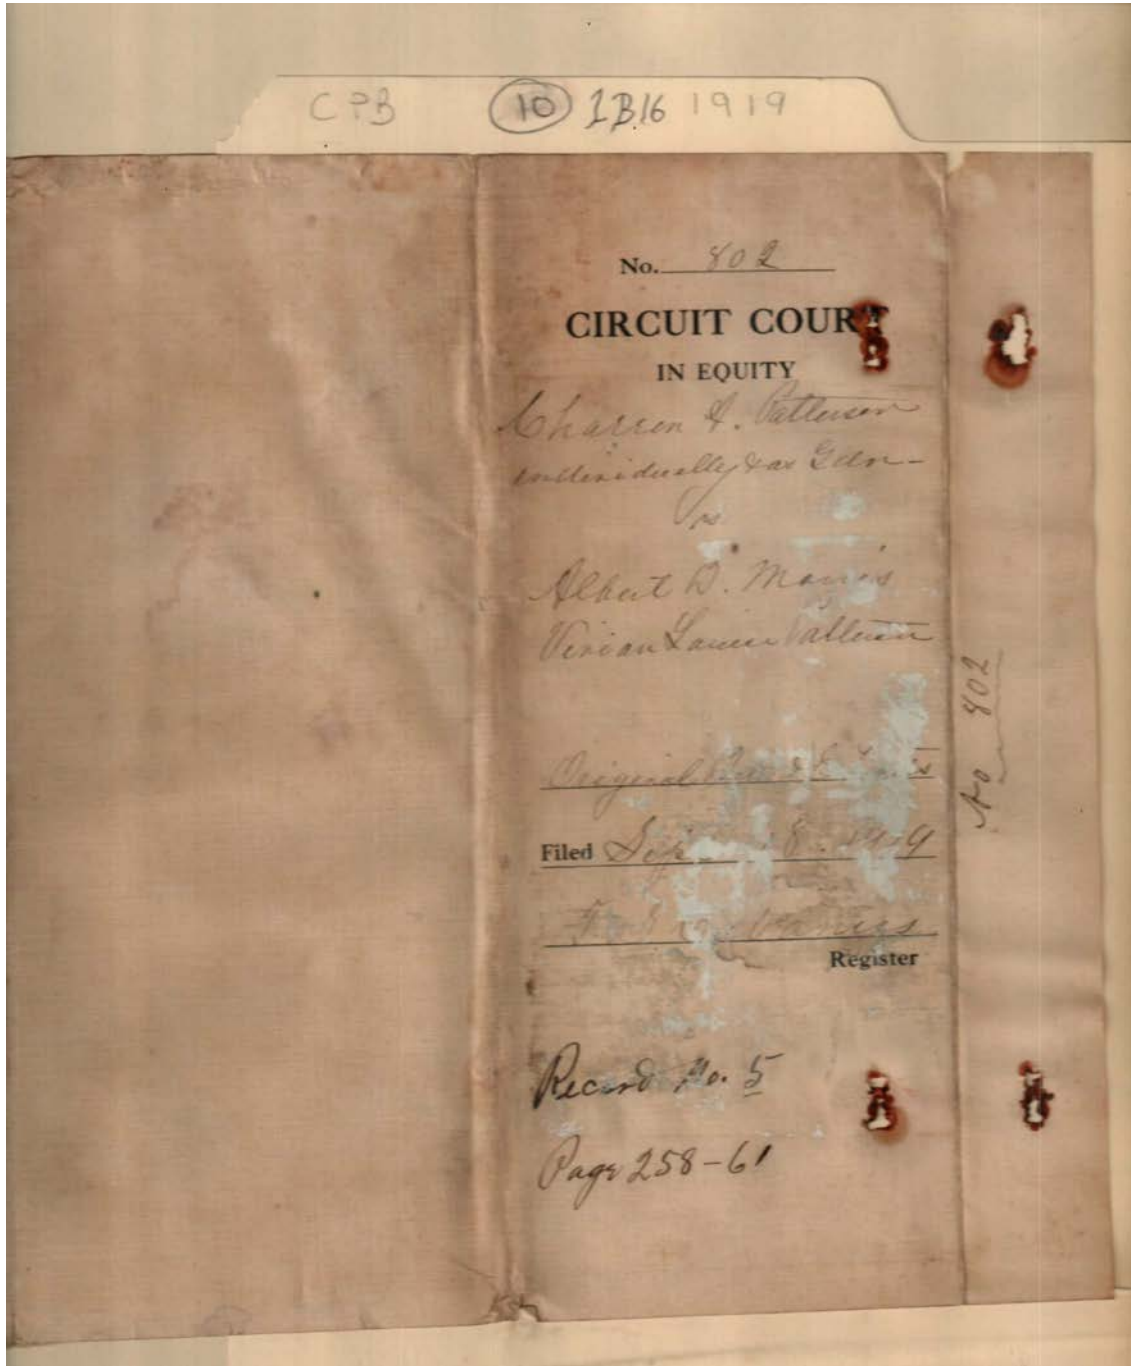 CPB 10 1B16 1919
No. 802
CIRCUIT COURT
IN EQUITY
A. Patterson
individually & as Gdn-
vs
Albert D. Morris
Vivian Louise Patterson
Original
Filed 8 1919
Register
Record No. 5
Page 258-61
No 802